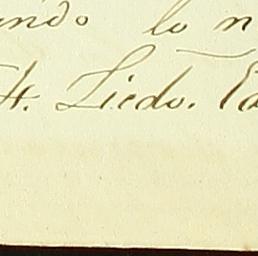 ndo lo n
t. Licdo. Ed